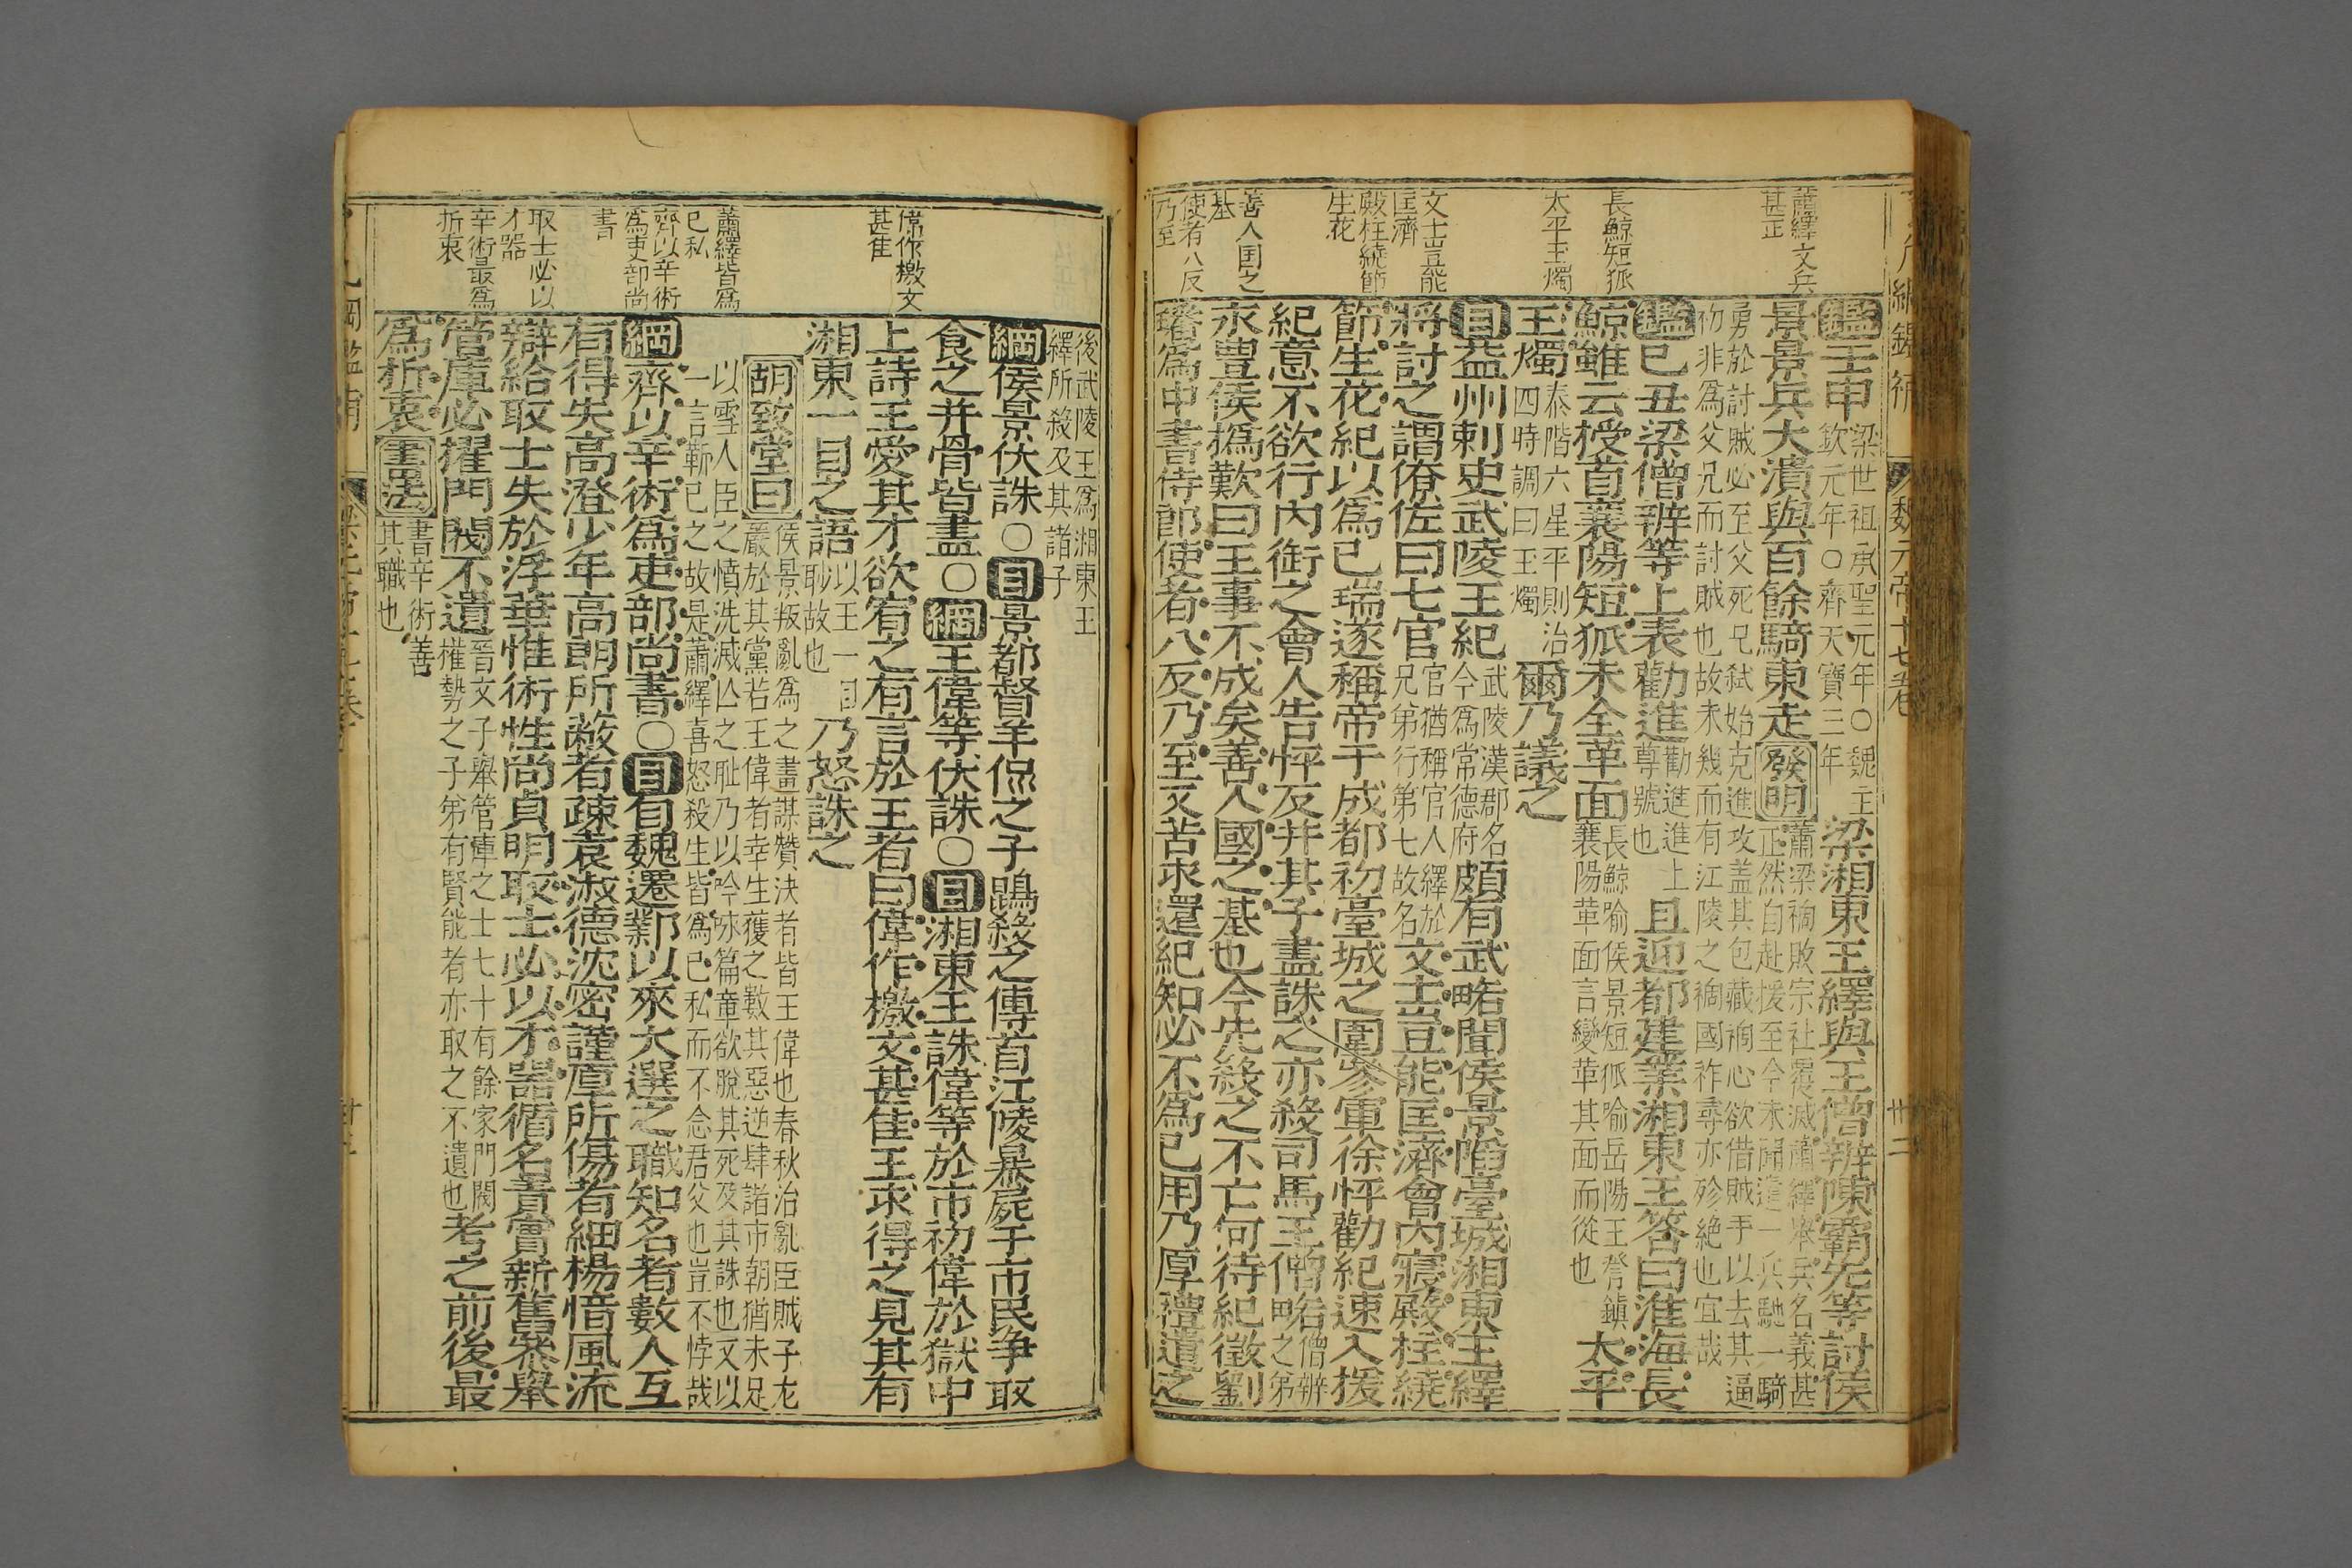 蕭繹文兵
甚正
長鯨短狐
太平玉燭
文士豈能
匡濟
殿柱繞節
生花
善人国之
基
使者八反
乃至
鑑壬申梁世祖承聖元年○魏主
欽元年○齊天寶三年梁湘東王繹與王僧辨陳霸先等討侯
景景兵大潰與百餘騎東走發明蕭梁禍敗宗社覆滅蕭繹舉兵名義甚
正然自赴援至今未聞遣一兵馳一騎
勇於討賊必至父死兄弑始克進攻盖其包藏禍心欲借賊手以去其逼
初非爲父兄而討賊也故未幾而有江陵之禍國祚尋亦殄絶也宜哉
鑑己丑梁僧辨等上表勸進勸進進上
尊號也且迎都建業湘東王答曰淮海長
鯨雖云授首襄陽短狐未全革面長鯨喻侯景短狐喻岳陽王詧鎮
襄陽革面言變革其面而從也太平
玉燭泰階六星平則治
四時調曰玉燭爾乃議之
目益州刺史武陵王紀武陵漢郡名
今爲常德府頗有武略聞侯景陷臺城湘東王繹
將討之謂僚佐曰七官官猶稱官人繹於
兄弟行第七故名文士豈能匡濟會内寢殿柱繞
節生花紀以爲已瑞遂稱帝于成都初臺城之圍參軍徐怦勸紀速入援
紀意不欲行内銜之會人告怦反并其子盡誅之亦殺司馬王僧略僧辨
之弟
永豊侯撝歎曰王事不成矣善人國之基也今先殺之不亡何待紀徵劉
璠爲中書侍郎使者八反乃至又苦求還紀知必不爲已用乃厚禮遣之
偉作檄文
甚佳
蕭繹皆爲
已私
齊以辛術
爲吏部尚
書
取士必以
才器
辛術最爲
折衷
後武陵王爲湘東王
繹所殺及其諸子
綱侯景伏誅○目景都督羊侃之子鵾殺之傳首江陵暴屍于市民争取
食之并骨皆盡○綱王偉等伏誅○目湘東王誅偉等於市初偉於獄中
上詩王愛其才欲宥之有言於王者曰偉作檄文甚佳王求得之見其有
湘東一目之語以王一目
眇故也乃怒誅之
胡致堂曰侯景叛亂爲之畫謀贊決者皆王偉也春秋治亂臣賊子尤
嚴於其黨若王偉者幸生獲之數其惡逆肆諸市朝猶未足
以雪人臣之憤洗滅亾之耻乃以吟咏篇章欲脫其死及其誅也又以
一言靳已之故是蕭繹喜怒殺生皆爲已私而不念君父也豈不悖哉
綱齊以辛術爲吏部尚書○目自魏遷鄴以來大選之職知名者數人互
有得失高澄少年高朗所蔽者疎袁淑德沈密謹厚所傷者細楊愔風流
辯給取士失於浮華惟術性尚貞明取士必以才器循名責實新舊參舉
管庫必擢門閥不遺晉文子舉管庫之士七十有餘家門閥
權勢之子弟有賢能者亦取之不遺也考之前後最
爲折衷書法書辛術善
其職也